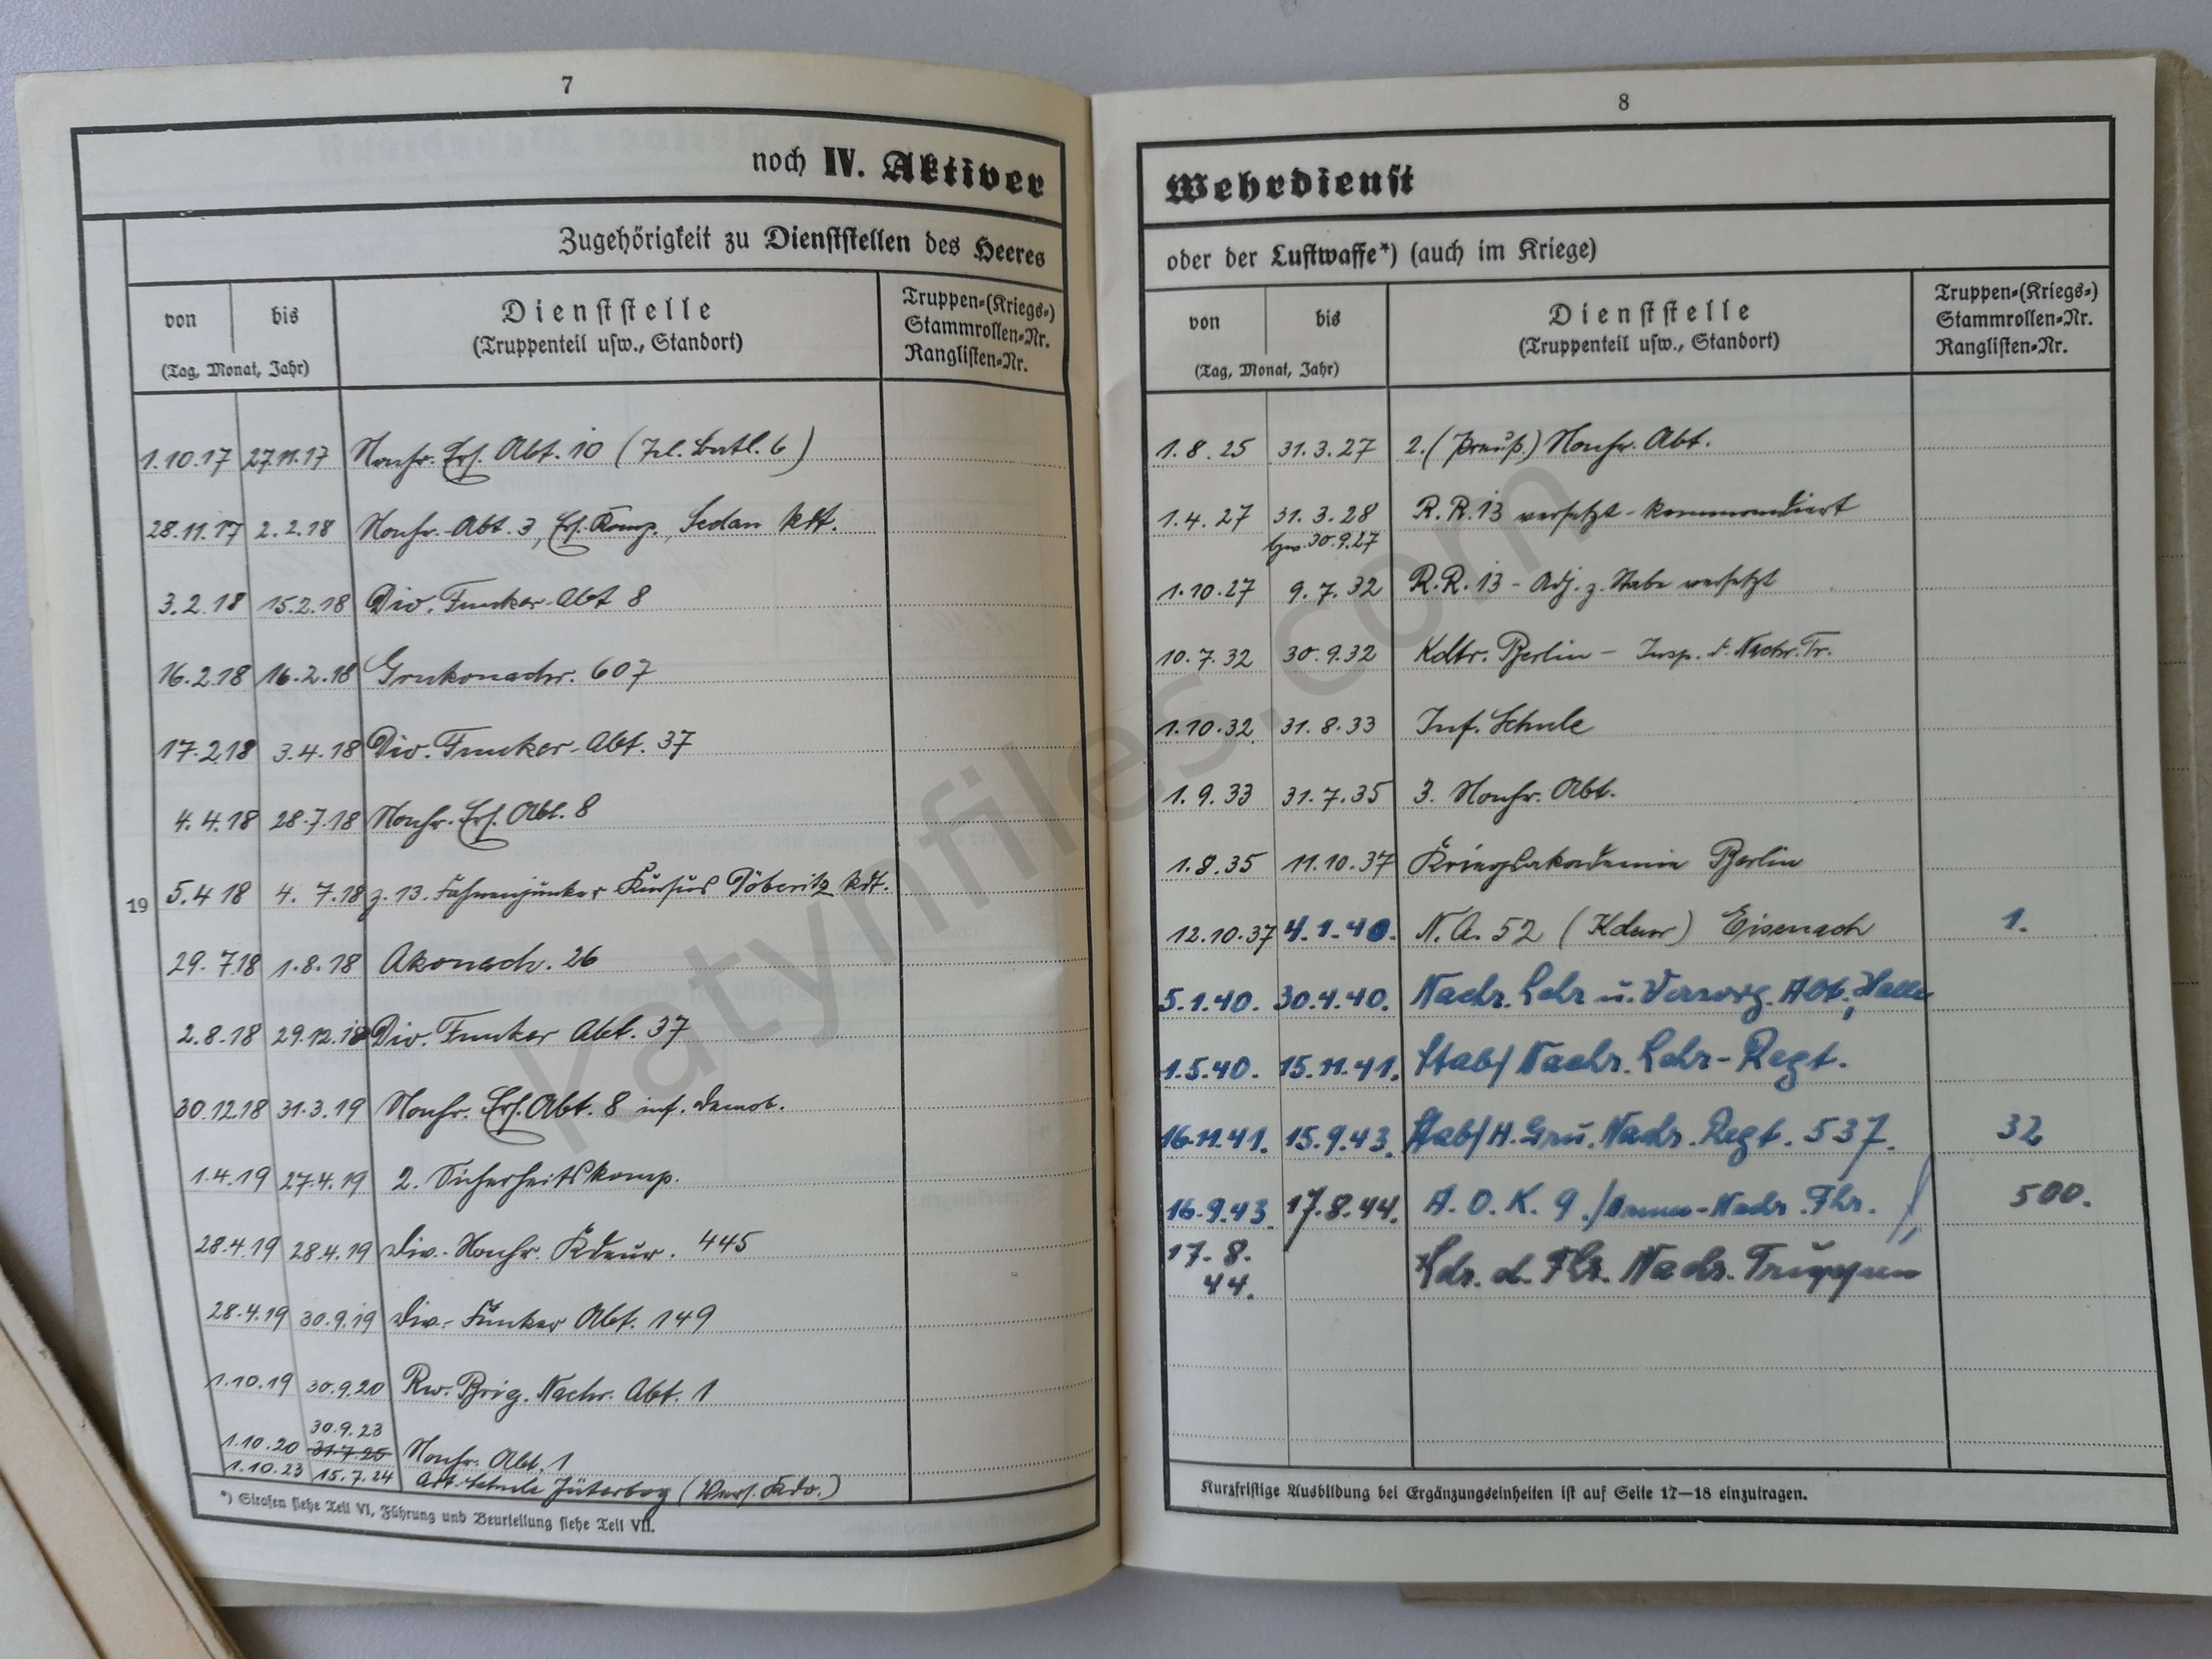 7
noch IV. Aktiver
Zugehörigkeit zu Dienststellen des Heeres
von
bis
(Tag, Monat, Jahr)
Dienststelle
(Truppenteil usw., Standort)
Truppen-(Kriegs-)
Stammrollen-Nr.
Ranglisten-Nr.
1.10.17 27.11.17 Nachr. Ers. Abt. 10 (Tel. Batl. 6)
28.11.17 2.2.18 Nachr.-Abt. 3, Ers. Komp., Sedan kdt.
3.2.18 15.2.18 Div. Funker-Abt 8
16.2.18 16.2.18 Grukonachr. 607
17.2.18 3.4.18 Div. Funker-Abt. 37
4.4.18 28.7.18 Nachr. Ers. Abt. 8
19 5.4 18 4. 7.18 z. 13. Fahnenjunker Kursus Döberitz kdt.
29. 7.18 1.8.18 Akonach. 26
2.8.18 29.12.18 Div. Funker Abt. 37
30.12.18 31.3.19 Nachr. Ers. Abt. 8 inf. Demob.
1.4.19 27.4.19 2. Sicherheitskomp.
28.4.19 28.4.19 Div.-Nachr. Kdeur. 445
28.4.19 30.9.19 Div.-Funker Abt. 149
1.10.19 30.9.20 Rw. Brig. Nachr. Abt. 1
30.9.23
1.10.20 31.7.25 Nachr. Abt. 1
1.10.23 15.7.24 Art. Schule Jüterbog (Vers. Kdo.)
*) Strafen siehe Teil VI, Führung und Beurteilung siehe Teil VII.
8
Wehrdienst
oder der Luftwaffe*) (auch im Kriege)
von
bis
(Tag, Monat, Jahr)
Dienststelle
(Truppenteil usw., Standort)
Truppen-(Kriegs-)
Stammrollen-Nr.
Ranglisten-Nr.
1.8.25 31.3.27 2. (Preuß.) Nachr. Abt.
1.4.27 31.3.28 R.R.13 versetzt - kommandiert
bzw. 30.9.27
1.10.27 9.7.32 R.R.13 - Adj. z. Stabe versetzt
10.7.32 30.9.32 Kdtr. Berlin - Insp. d. Nachr. Tr.
1.10.32 31.8.33 Inf. Schule
1.9.33 31.7.35 3. Nachr. Abt.
1.8.35 11.10.37 Kriegsakademie Berlin
12.10.37 4.1.40. N.A. 52 (Kdeur) Eisenach 1.
5.1.40. 30.4.40. Nachr. Lehr u. Versorg. Abt., Halle
1.5.40. 15.11.41. Stab/Nachr. Lehr-Regt.
16.11.41. 15.9.43. Stab/H. Gru. Nachr. Regt. 537. 32
16.9.43. 17.8.44. A.O.K. 9./Armee-Nachr. Fhr. 500.
17.8.
44. Kdr. d. Fhr. Nachr. Truppen
Kurzfristige Ausbildung bei Ergänzungseinheiten ist auf Seite 17—18 einzutragen.
katynfiles.com